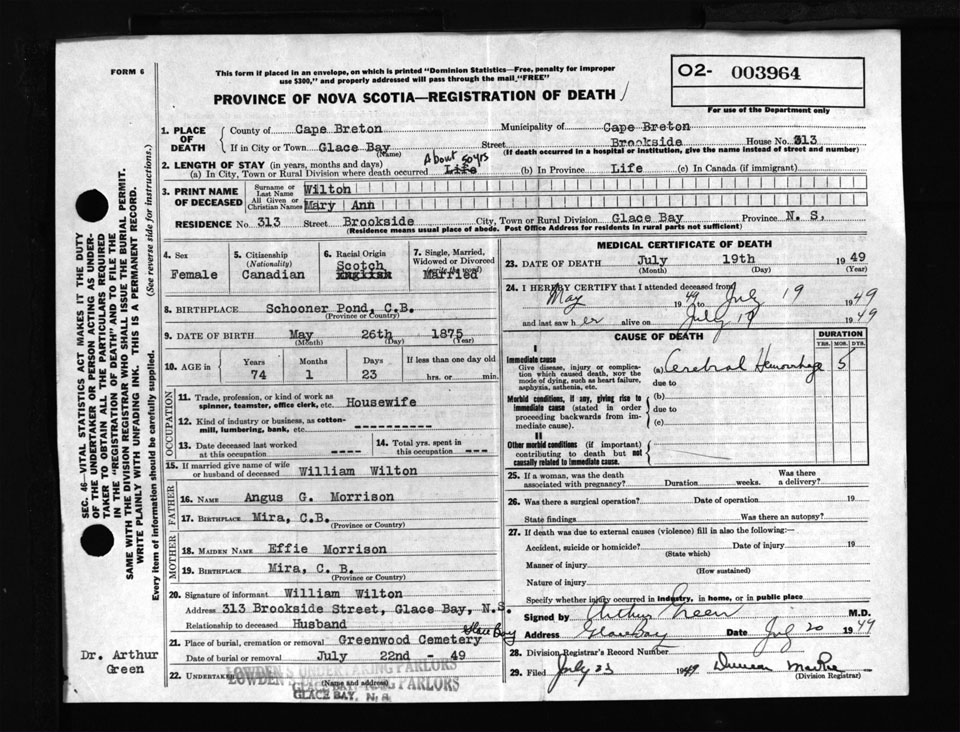 FORM 6
This form if placed in an envelope, on which is printed "Dominion Statistics—Free, penalty for improper
use $300," and properly addressed will pass through the mail "FREE"
PROVINCE OF NOVA SCOTIA—REGISTRATION OF DEATH
02- 003964
For use of the Department only
1. PLACE OF DEATH
County of Cape Breton Municipality of Cape Breton
If in City or Town Glace Bay Street Brookside House No. 313
(Name) (If death occurred in a hospital or institution, give the name instead of street and number)
2. LENGTH OF STAY (in years, months and days)
About 50 yrs
(a) In City, Town or Rural Division where death occurred Life (b) In Province Life (c) In Canada (if immigrant)
3. PRINT NAME OF DECEASED
Surname or Last Name Wilton
All Given or Christian Names Mary Ann
RESIDENCE No. 313 Street Brookside City, Town or Rural Division Glace Bay Province N. S,
(Residence means usual place of abode. Post Office Address for residents in rural parts not sufficient)
4. Sex
Female
5. Citizenship
(Nationality)
Canadian
6. Racial Origin
Scotch
English
7. Single, Married,
Widowed or Divorced
(write the word)
Married
8. BIRTHPLACE Schooner Pond, C.B.
(Province or Country)
9. DATE OF BIRTH May 26th 1875
(Month) (Day) (Year)
10. AGE in Years Months Days If less than one day old
74 1 23 hrs. or min.
OCCUPATION
11. Trade, profession, or kind of work as
spinner, teamster, office clerk, etc. Housewife
12. Kind of industry or business, as cotton-
mill, lumbering, bank, etc.
13. Date deceased last worked
at this occupation
14. Total yrs. spent in
this occupation
15. If married give name of wife
or husband of deceased William Wilton
FATHER
16. NAME Angus G. Morrison
17. BIRTHPLACE Mira, C.B.
(Province or Country)
MOTHER
18. MAIDEN NAME Effie Morrison
19. BIRTHPLACE Mira, C. B.
(Province or Country)
20. Signature of informant William Wilton
Address 313 Brookside Street, Glace Bay, N.S.
Relationship to deceased Husband
21. Place of burial, cremation or removal Greenwood Cemetery Glace Bay
Date of burial or removal July 22nd - 49
22. UNDERTAKER LOWDEN'S UNDERTAKING PARLORS
(Name and address)
GLACE BAY, N.S.
MEDICAL CERTIFICATE OF DEATH
23. DATE OF DEATH July 19th 1949
(Month) (Day) (Year)
24. I HEREBY CERTIFY that I attended deceased from
May 1949 to July 19 1949
and last saw her alive on July 19 1949
CAUSE OF DEATH
DURATION
YRS. MOS. DYS.
I
Immediate cause
Give disease, injury or complica-
tion which caused death, not the
mode of dying, such as heart failure,
asphyxia, asthenia, etc.
(a) Cerebral Hemorrhage 5
due to
Morbid conditions, if any, giving rise to
immediate cause (stated in order
proceeding backwards from im-
mediate cause).
(b)
due to
(c)
II
Other morbid conditions (if important)
contributing to death but not
causally related to immediate cause.
25. If a woman, was the death
associated with pregnancy? Duration weeks. Was there
a delivery?
26. Was there a surgical operation? Date of operation 19
State findings Was there an autopsy?
27. If death was due to external causes (violence) fill in also the following:—
Accident, suicide or homicide? Date of injury 19
(State which)
Manner of injury
(How sustained)
Nature of injury
Specify whether injury occurred in industry, in home, or in public place
Signed by Arthur Green M.D.
Address Glace Bay Date July 20 1949
28. Division Registrar's Record Number
29. Filed July 23 1949 Duncan MacRae
(Division Registrar)
Dr. Arthur
Green
SEC. 46—VITAL STATISTICS ACT MAKES IT THE DUTY
OF THE UNDERTAKER OR PERSON ACTING AS UNDER-
TAKER TO OBTAIN ALL THE PARTICULARS REQUIRED
IN THE "REGISTRATION OF DEATH" AND TO FILE THE
SAME WITH THE DIVISION REGISTRAR WHO SHALL ISSUE THE BURIAL PERMIT.
WRITE PLAINLY WITH UNFADING INK. THIS IS A PERMANENT RECORD.
Every item of information should be carefully supplied. (See reverse side for instructions.)